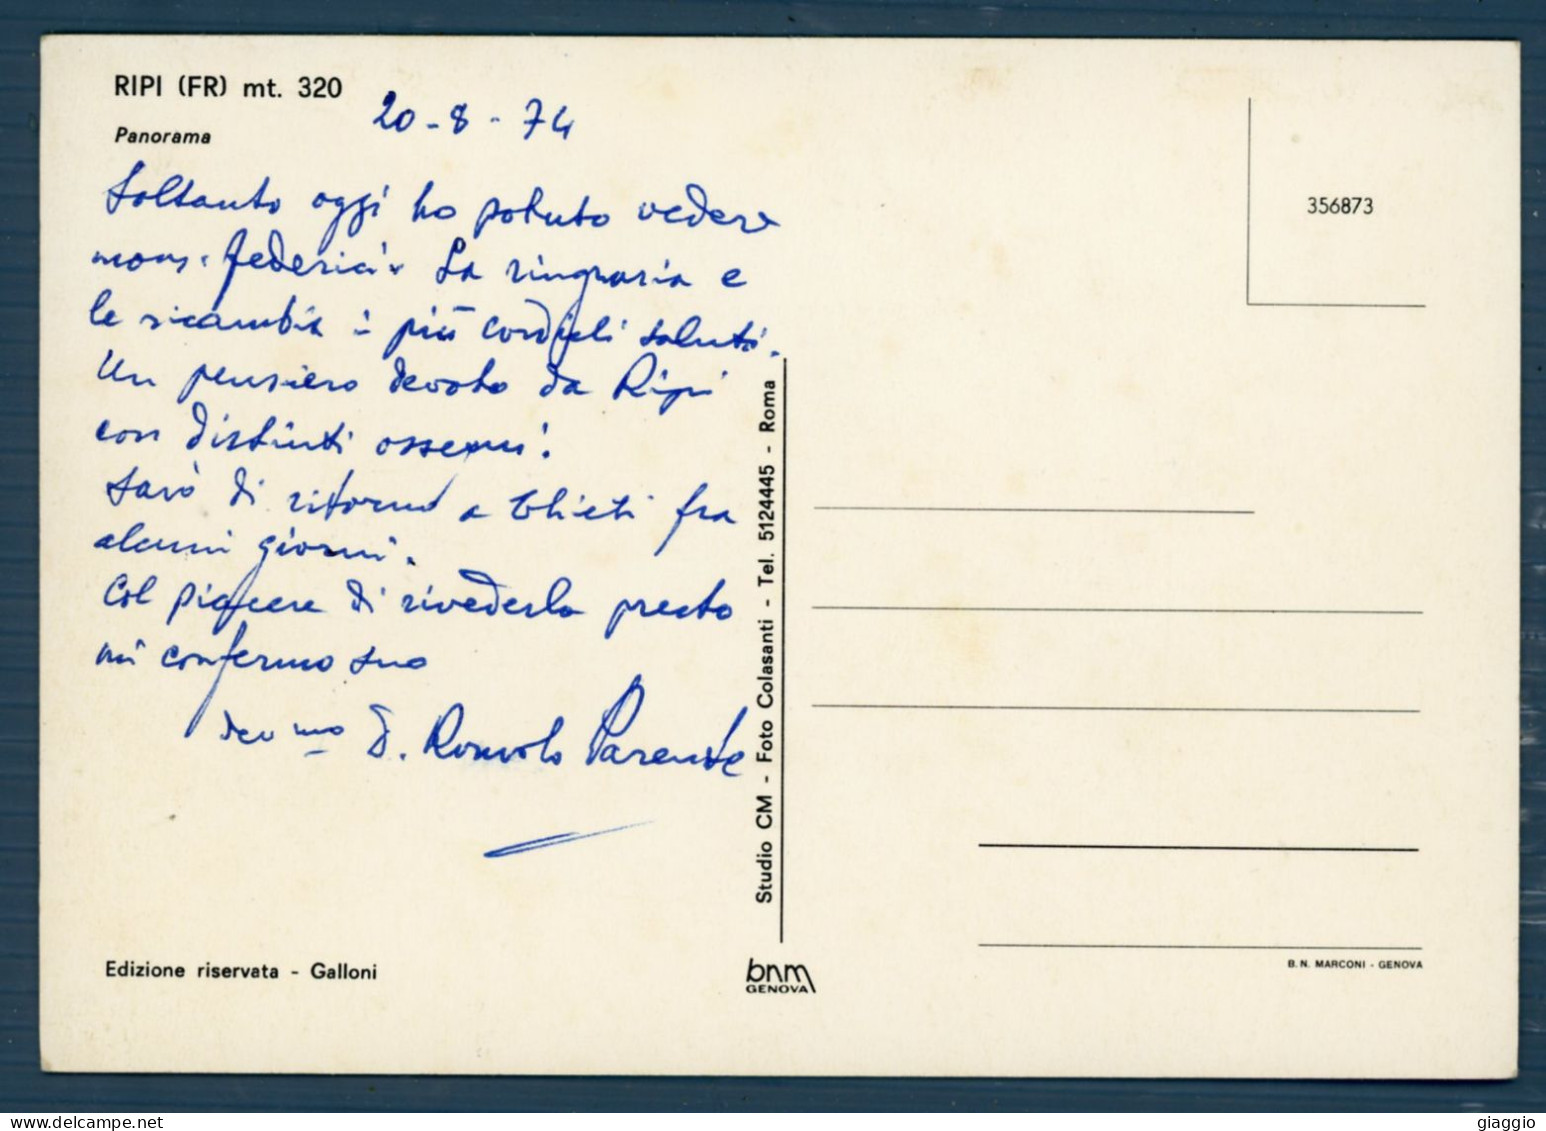 RIPI (FR) mt. 320
Panorama
20-8-74
Soltanto oggi ho potuto vedere
mons. Federici. La ringrazia e
le ricambia i più cordiali saluti.
Un pensiero devoto da Ripi
con distinti ossequi.
Sarò di ritorno a Chieti fra
alcuni giorni.
Col piacere di rivederla presto
mi confermo suo
dev.mo D. Romolo Parente
Edizione riservata - Galloni
Studio CM - Foto Colasanti - Tel. 5124445 - Roma
bnm
GENOVA
356873
B.N. MARCONI - GENOVA
giaggio